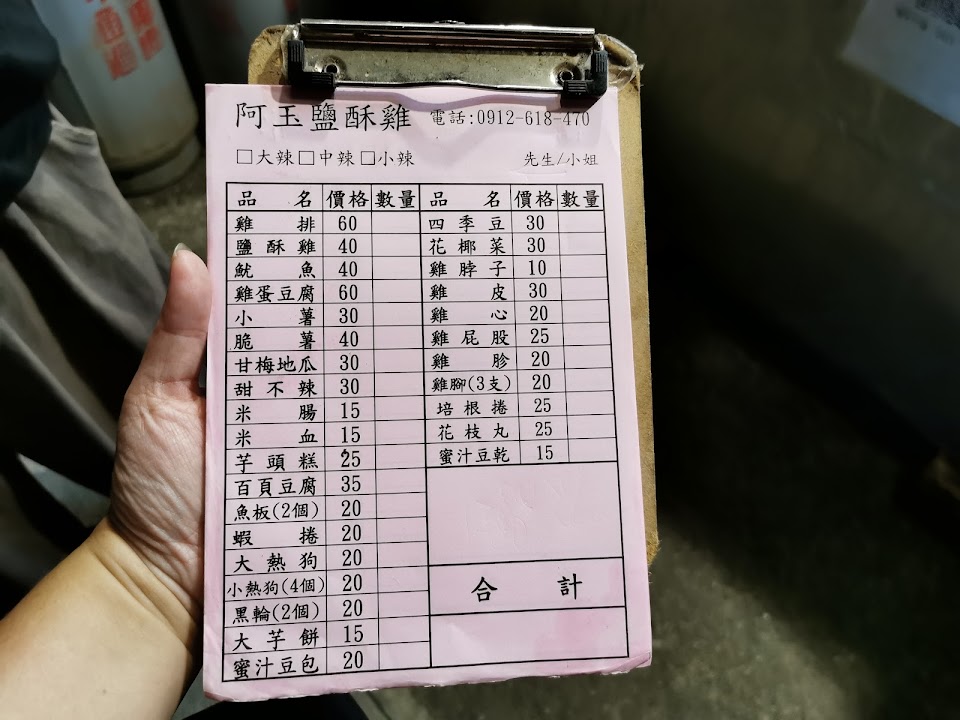 阿玉鹽酥雞 電話:0912-618-470
□大辣□中辣□小辣 先生/小姐
品名 價格 數量 品名 價格 數量
雞排 60 四季豆 30
鹽酥雞 40 花椰菜 30
魷魚 40 雞脖子 10
雞蛋豆腐 60 雞皮 30
小薯 30 雞心 20
脆薯 40 雞屁股 25
甘梅地瓜 30 雞胗 20
甜不辣 30 雞腳(3支) 20
米腸 15 培根捲 25
米血 15 花枝丸 25
芋頭糕 25 蜜汁豆乾 15
百頁豆腐 35
魚板(2個) 20
蝦捲 20
大熱狗 20
小熱狗(4個) 20
黑輪(2個) 20
大芋餅 15
蜜汁豆包 20
合計